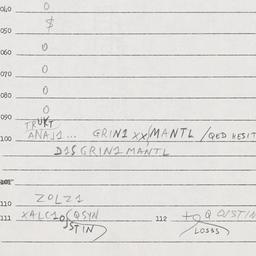 040 0
050 $
060 0
070 0
080 0
090 0
TRUKT
100 ANAJ1... GRIN1 XX/MANTL /QED HESIT
D1SGRIN1MANTL
101
110 ZOLZ1
111 XALC10/QSYN 112 TO Q D/STIN
STIN /LOSSS